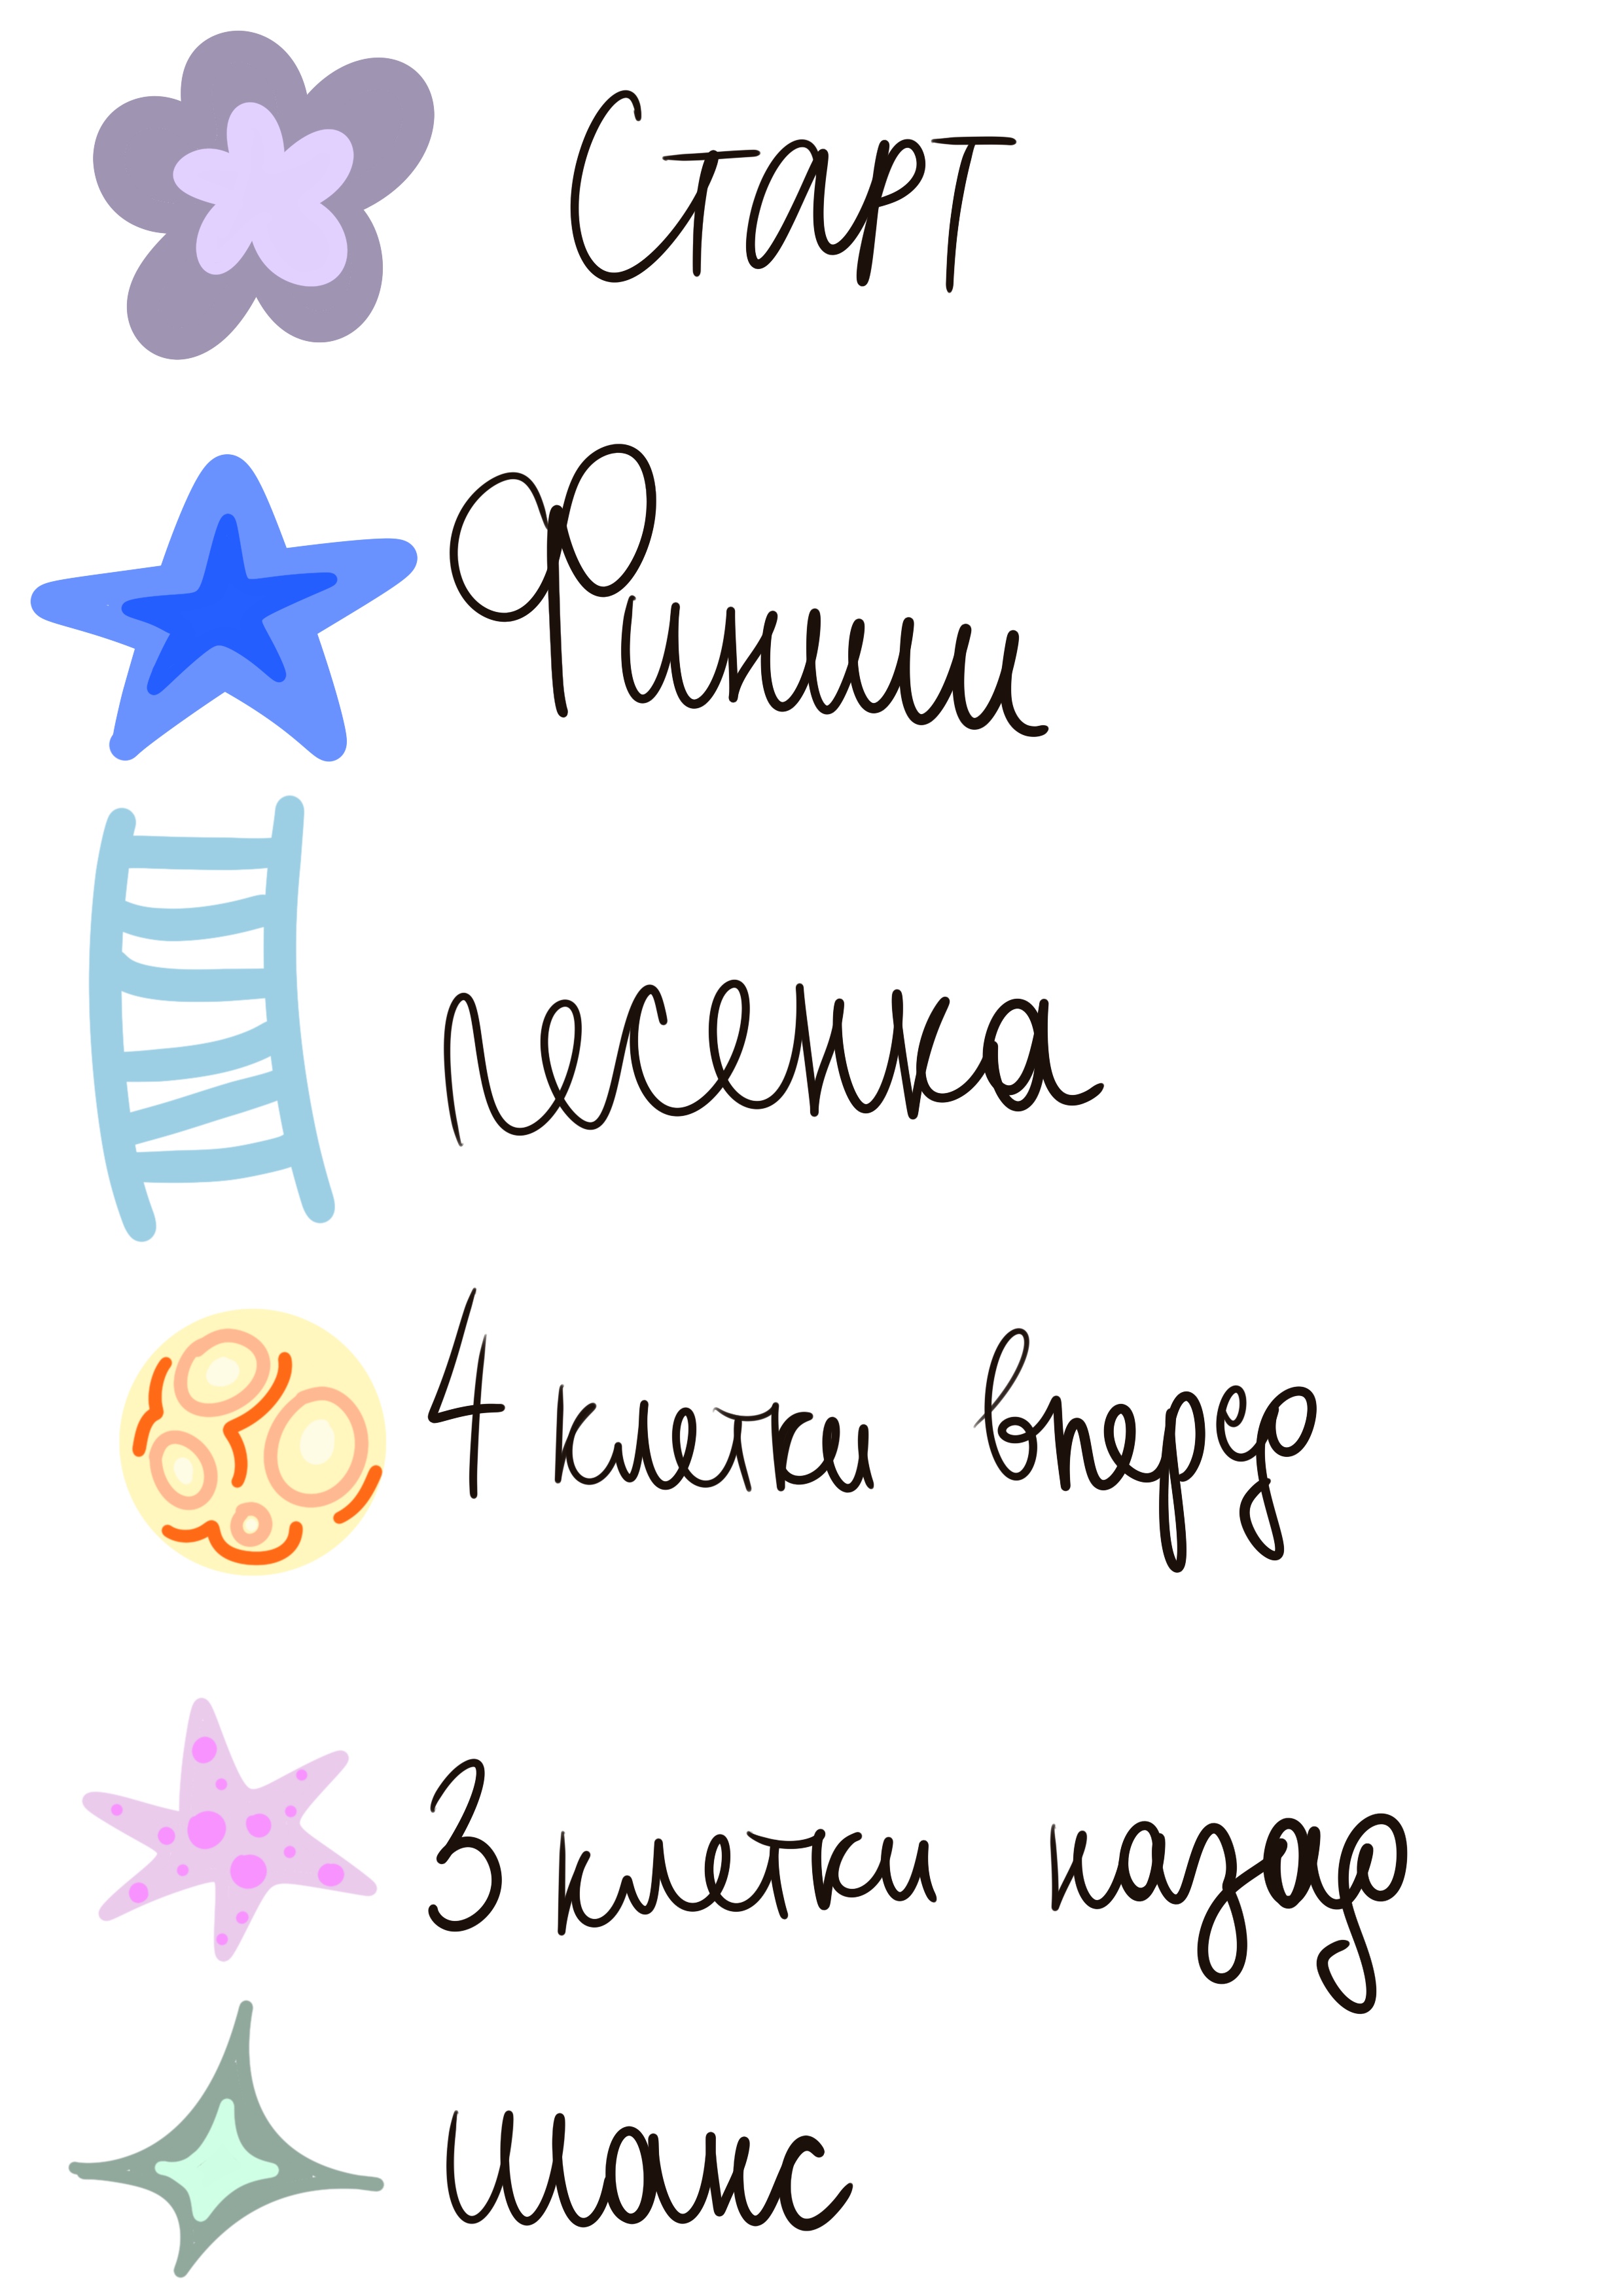 Старт
Финиш
лесенка
4 клетки вперед
3 клетки назад
шанс